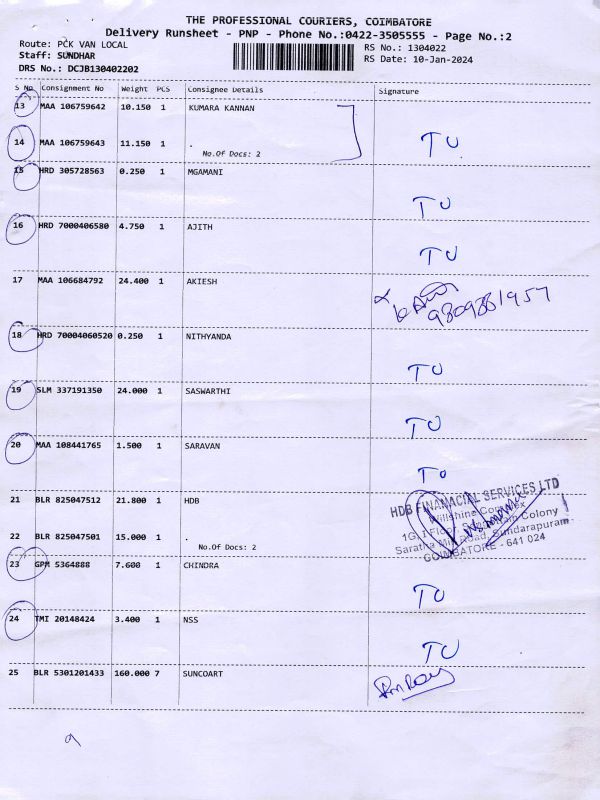 THE PROFESSIONAL COURIERS, COIMBATORE
Delivery Runsheet - PNP - Phone No.:0422-3505555 - Page No.:2
Route: PCK VAN LOCAL RS No.: 1304022
Staff: SUNDHAR RS Date: 10-Jan-2024
DRS No.: DCJB130402202
S No Consignment No Weight PCS Consignee Details Signature
13 MAA 106759642 10.150 1 KUMARA KANNAN
14 MAA 106759643 11.150 1 . TO
No.Of Docs: 2
15 HRD 305728563 0.250 1 MGAMANI
TO
16 HRD 7000406580 4.750 1 AJITH
TO
17 MAA 106684792 24.400 1 AKIESH
9809861957
18 HRD 70004060520 0.250 1 NITHYANDA
TO
19 SLM 337191350 24.000 1 SASWARTHI
TO
20 MAA 108441765 1.500 1 SARAVAN
TO
21 BLR 825047512 21.800 1 HDB
HDB FINANACIAL SERVICES LTD
Willshine Complex
1G, I Floor, Colony
Saratha Mill Road, Sundarapuram
COIMBATORE - 641 024
22 BLR 825047501 15.000 1 .
No.Of Docs: 2
23 GPM 5364888 7.600 1 CHINDRA
TO
24 TMI 20148424 3.400 1 NSS
TO
25 BLR 5301201433 160.000 7 SUNCOART
9